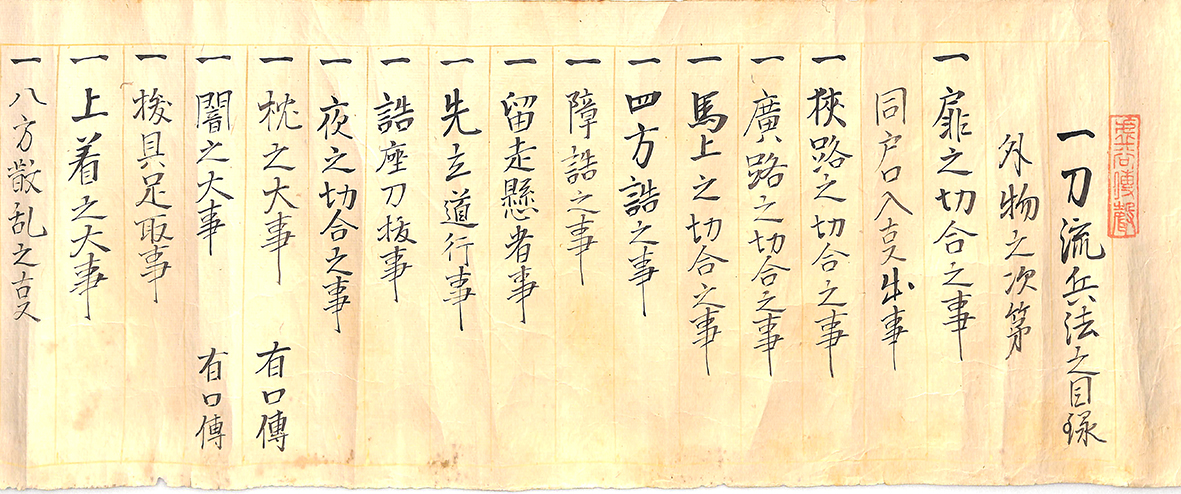 一刀流兵法之目録
外物之次第
一 扉之切合之事
同戸口入叓出事
一 狹路之切合之事
一 廣路之切合之事
一 馬上之切合之事
一 四方誥之事
一 障誥之事
一 留走懸者事
一 先立道行事
一 誥座刀抜事
一 夜之切合之事
一 枕之大事 有口傳
一 闇之大事 有口傳
一 具足取事
一 上着之大事
一 八方散乱之叓